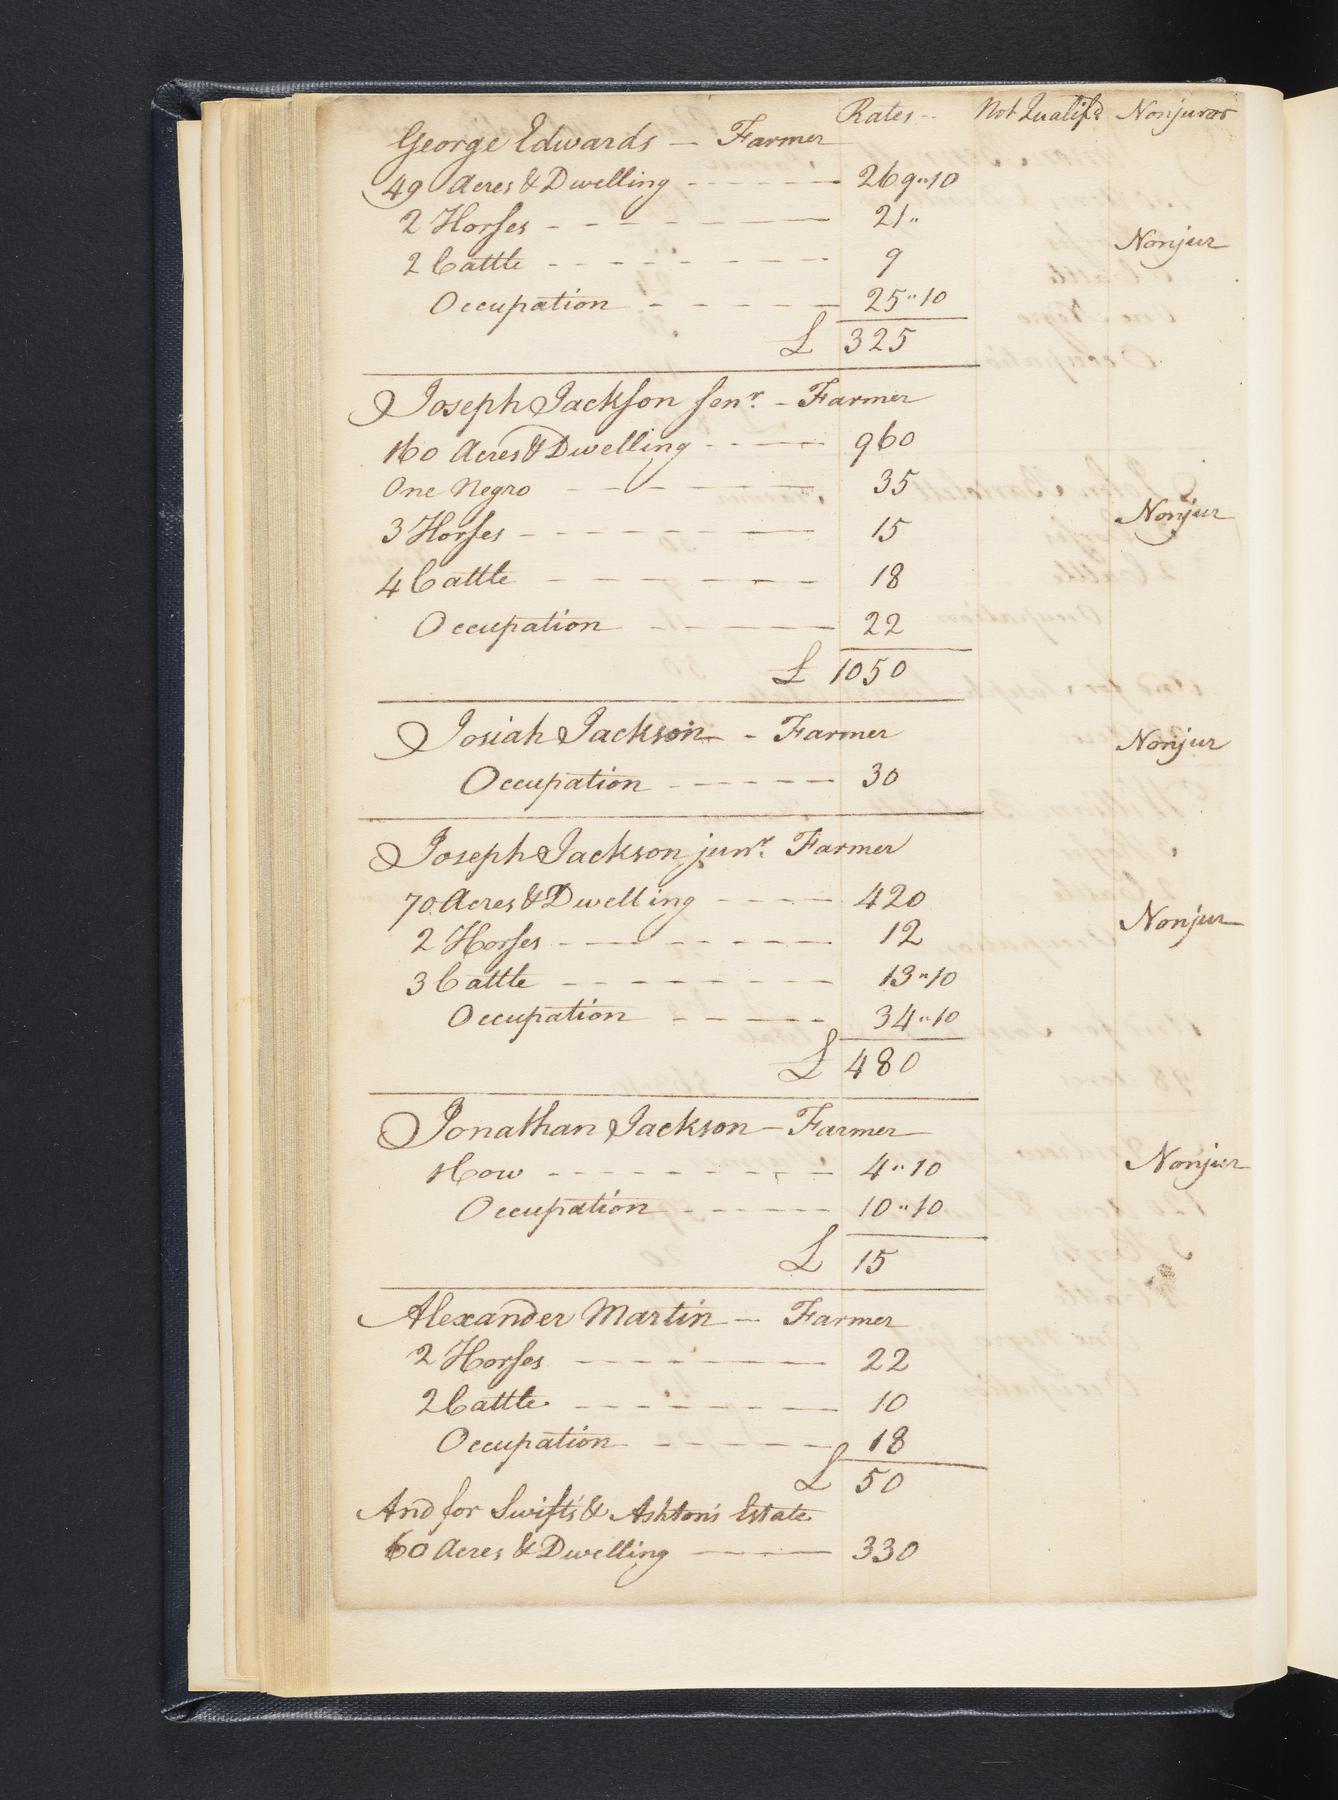 Rates -- Not Qualifd Nonjuror
George Edwards — Farmer
49 Acres & Dwelling - - - - - 269"10
2 Horses - - - - - 21"
Nonjur
2 Cattle - - - - - 9
Occupation - - - - - 25"10
£ 325
Joseph Jackson senr. - Farmer
160 Acres & Dwelling - - - - 960
One Negro - - - - 35
Nonjur
3 Horses - - - - - 15
4 Cattle - - - - - 18
Occupation - - - - 22
£ 1050
Josiah Jackson - Farmer Nonjur
Occupation - - - - - 30
Joseph Jackson junr. Farmer
70 Acres & Dwelling - - - - 420
Nonjur
2 Horses - - - - - 12
3 Cattle - - - - - 13"10
Occupation - - - - 34"10
£ 480
Jonathan Jackson — Farmer
1 Cow - - - - - 4"10 Nonjur
Occupation - - - - - 10"10
£ 15
Alexander Martin — Farmer
2 Horses - - - - - 22
2 Cattle - - - - - 10
Occupation - - - - - 18
£ 50
And for Swift's & Ashton's Estate
60 Acres & Dwelling — — 330